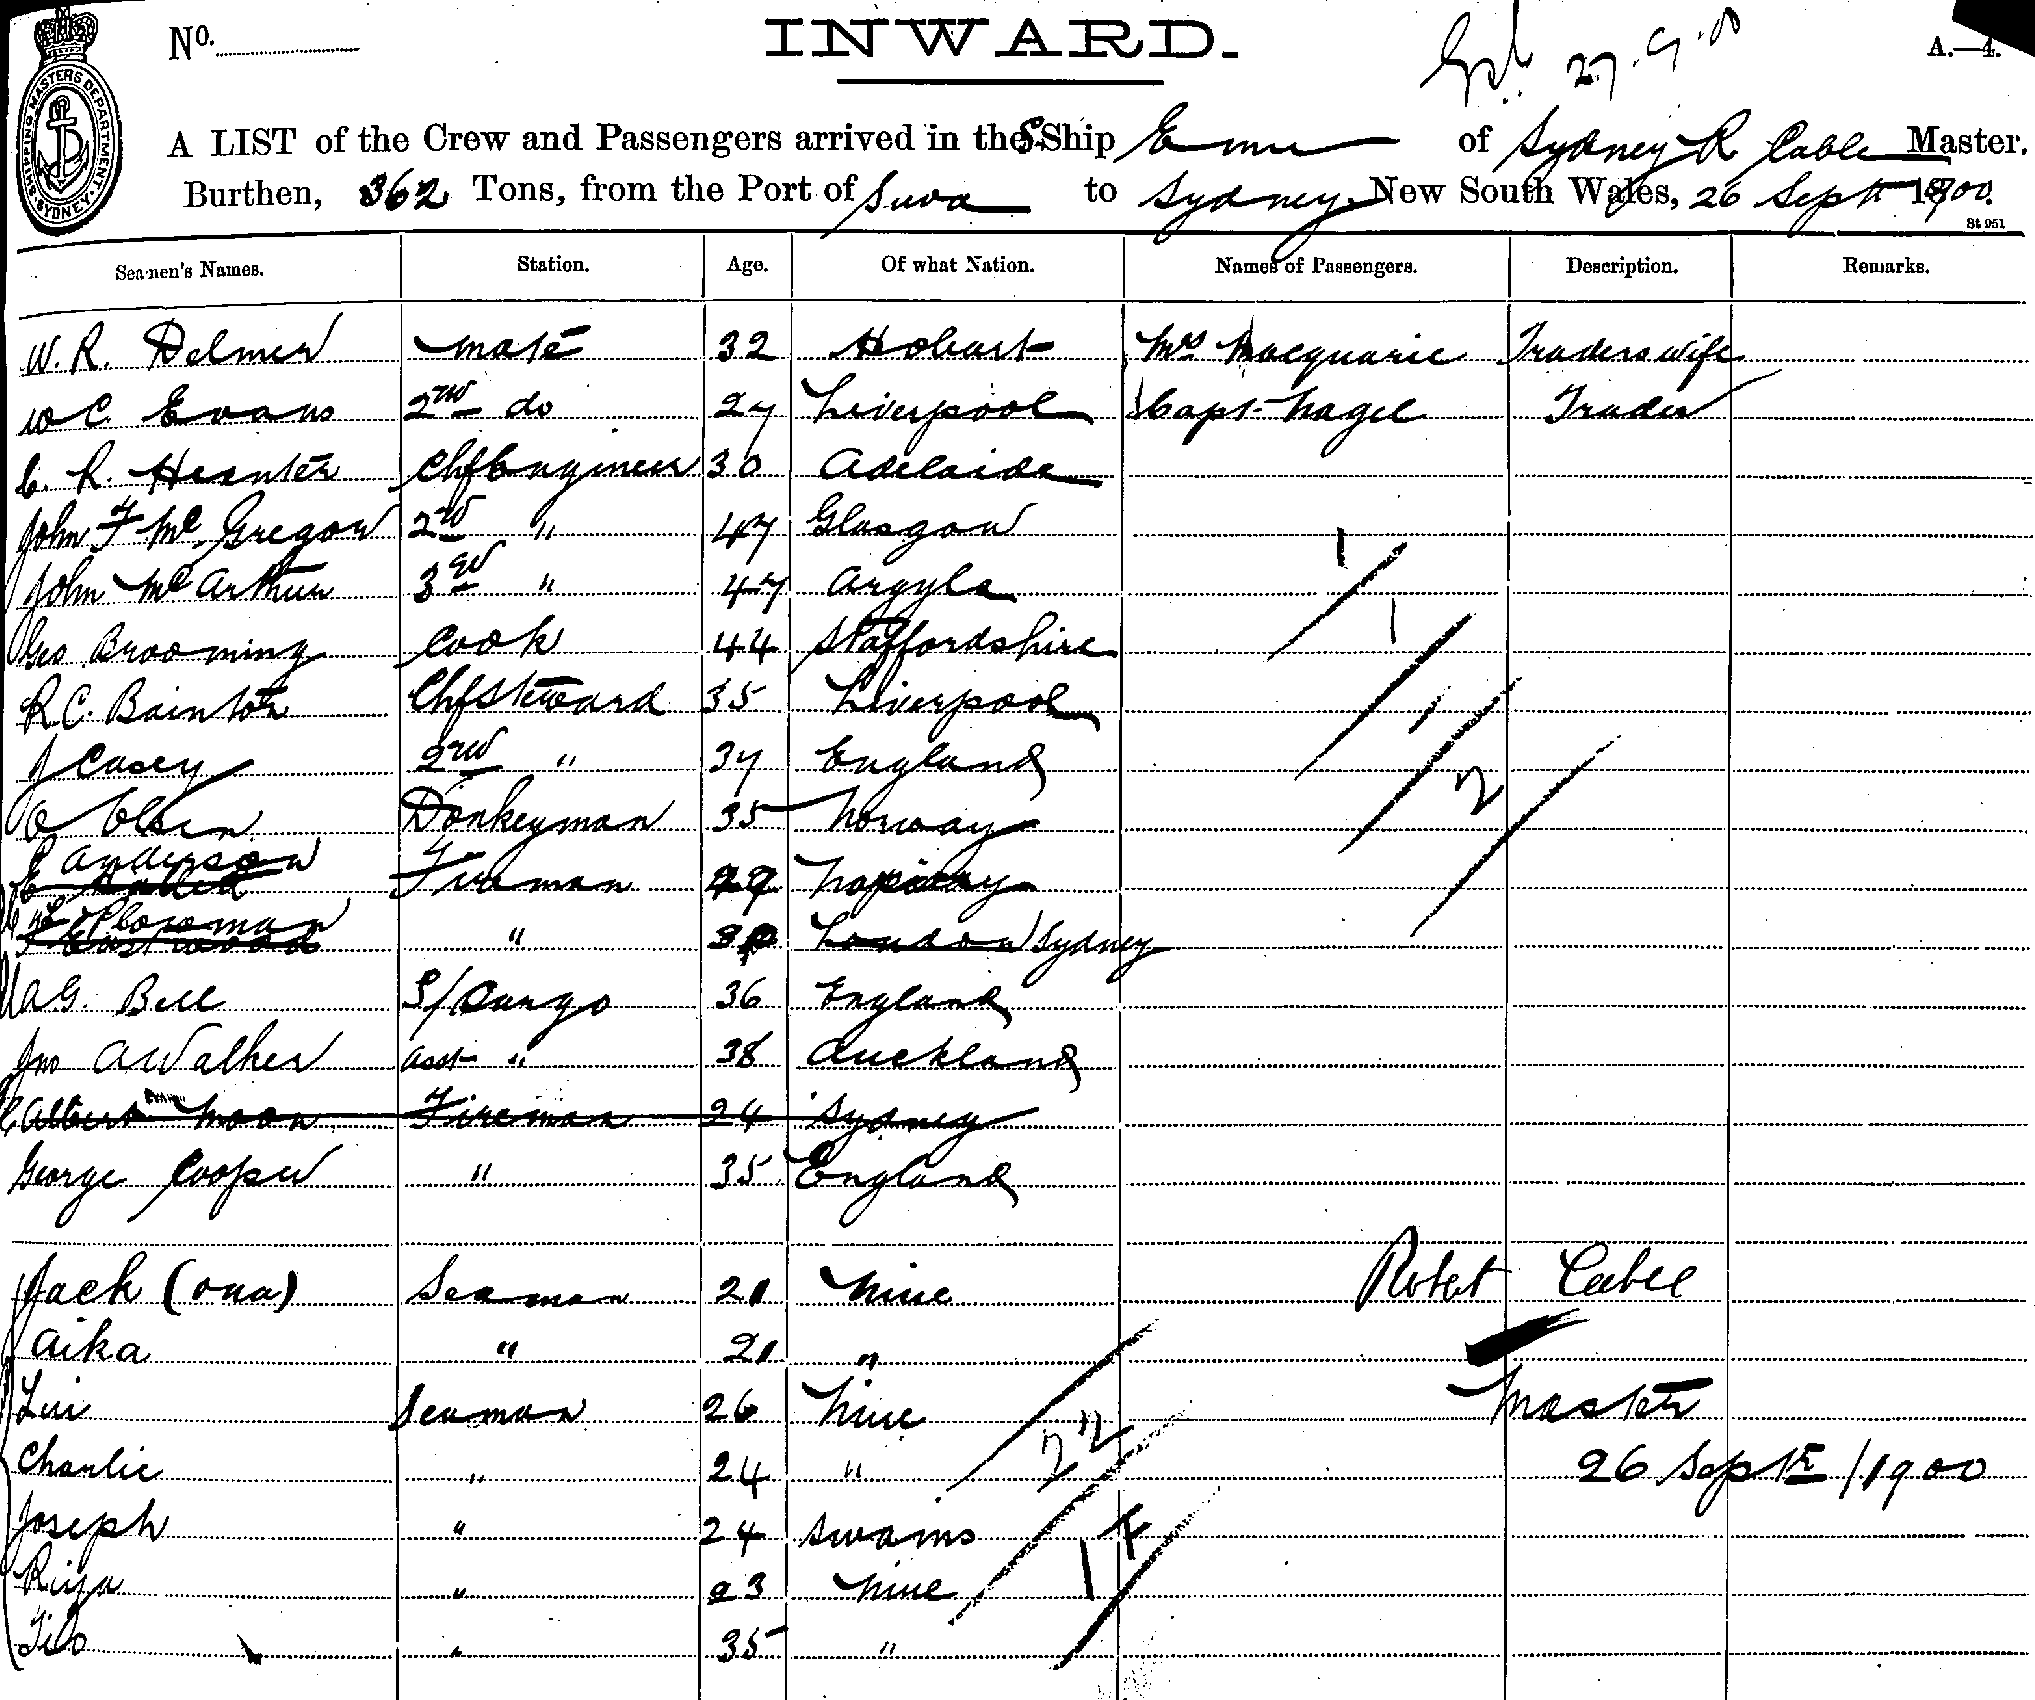 No.
INWARD.
27.9.00
A.—4.
SHIPPING MASTERS DEPARTMENT SYDNEY
A LIST of the Crew and Passengers arrived in the S. Ship Emu of Sydney R Cable Master.
Burthen, 362 Tons, from the Port of Suva to Sydney New South Wales, 26 Sept 1900.
St 951
Seamen's Names. Station. Age. Of what Nation. Names of Passengers. Description. Remarks.
W. R. Delmer mate 32 Hobart Mrs Macquarie Traders wife
W C. Evans 2nd do 27 Liverpool Capt. Nagel Trader
C. R. Hunter Chf Engineer 30 Adelaide
John F McGregor 2nd " 47 Glasgow
John McArthur 3rd " 47 Argyle
Geo Brooming Cook 44 Staffordshire
R.C. Bainton Chf Steward 35 Liverpool
J Casey 2nd " 37 England
O Olsen Donkeyman 35 Norway
Anderson
Fireman Norway
Plowman
Eastwood " London Sydney
A.G. Bell S/Cargo 36 England
Jno A Walker asst " 38 Auckland
Albert Moon Fireman 24 Sydney
George Cooper " 35 England
Jack (oua) Seaman 21 Niue Robert Cable
Aika " 21 "
Lui Seaman 26 Niue Master
Charlie " 24 " 26 Septr /1900
Joseph " 24 Swains
" 23 Niue
" 35 "